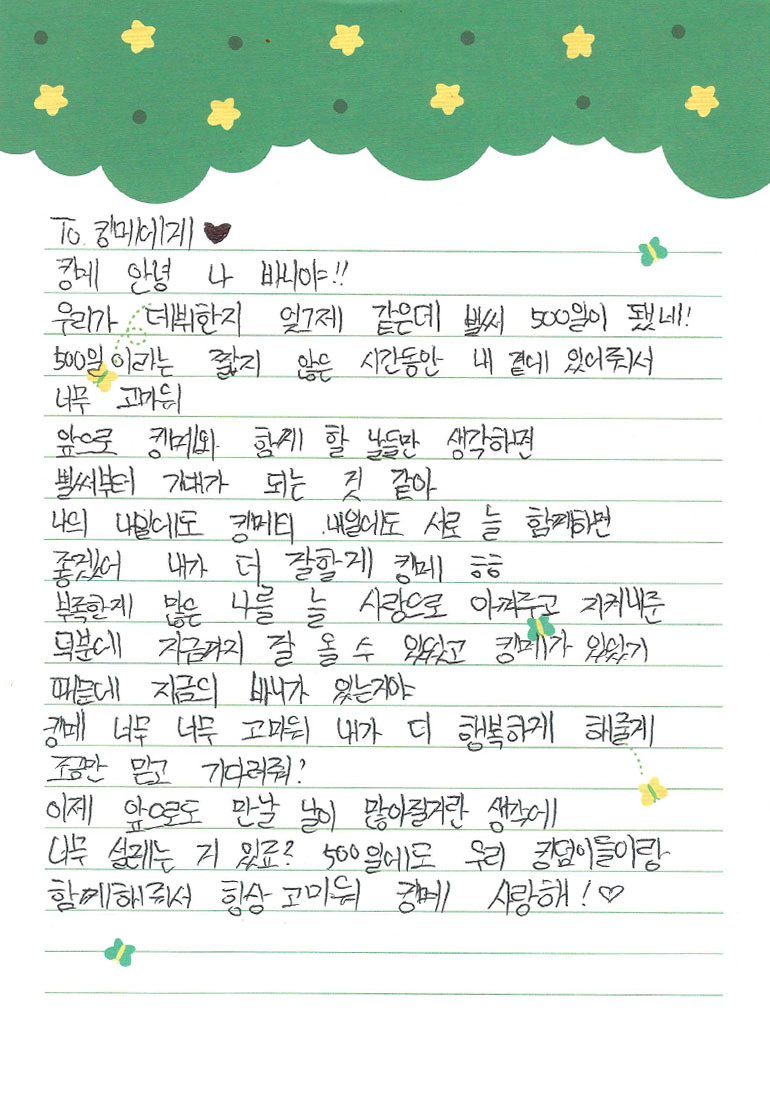 To. 킹메에게 ♥
킹메 안녕 나 바니야!!
우리가 데뷔한지 엊그제 같은데 벌써 500일이 됐네!
500일 이라는 짧지 않은 시간동안 내 곁에 있어줘서
너무 고마워
앞으로 킹메와 함께 할 날들만 생각하면
벌써부터 기대가 되는 것 같아
나의 내일에도 킹메의 내일에도 서로 늘 함께하면
좋겠어 내가 더 잘할게 킹메 ㅎㅎ
부족한게 많은 나를 늘 사랑으로 아껴주고 지켜내준
덕분에 지금까지 잘 올 수 있었고 킹메가 있었기
때문에 지금의 바니가 있는거야
킹메 너무 너무 고마워 내가 더 행복하게 해줄게
조금만 믿고 기다려줘!
이제 앞으로도 만날 날이 많아질거란 생각에
너무 설레는 거 있죠? 500일에도 우리 킹덤이들이랑
함께해줘서 항상 고마워 킹메 사랑해! ♡